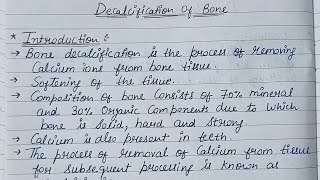 Decalcification of Bone
* Introduction :
→ Bone decalcification is the process of removing
Calcium ions from bone tissue.
→ Softening of the tissue.
→ Composition of bone consists of 70% mineral
and 30% Organic Components due to which
bone is solid, hard and strong
→ Calcium is also present in teeth
→ The process of removal of Calcium from tissue
for subsequent processing is known as